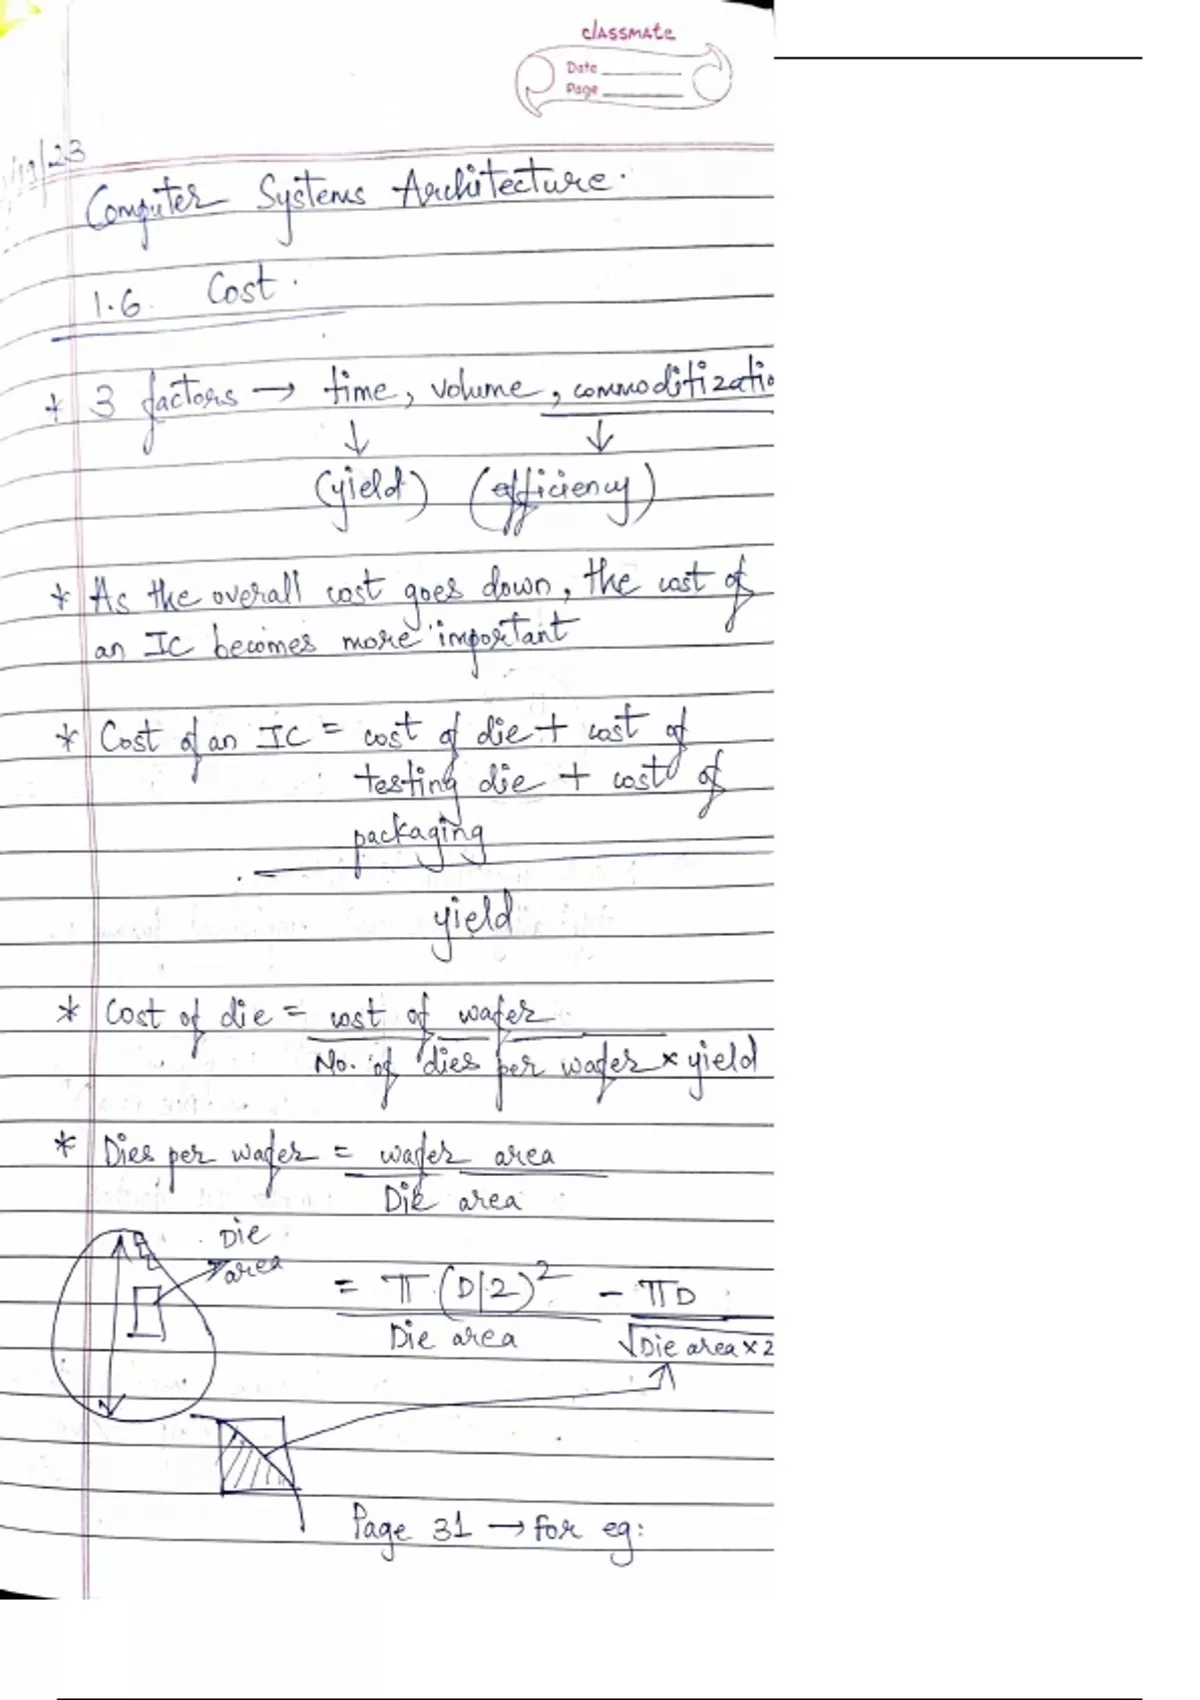 classmate
Date
Page
/19/23
Computer Systems Architecture.
1.6. Cost.
* 3 factors → time, volume, commoditizatio
↓ ↓
(yield) (efficiency)
* As the overall cost goes down, the cost of
an IC becomes more important
* Cost of an IC = cost of die + cost of
testing die + cost of
packaging
yield
* Cost of die = cost of wafer
No. of dies per wafer × yield
* Dies per wafer = wafer area
Die area
Die
area
= π (D/2)² - πD
Die area √Die area × 2
Page 31 → for eg: